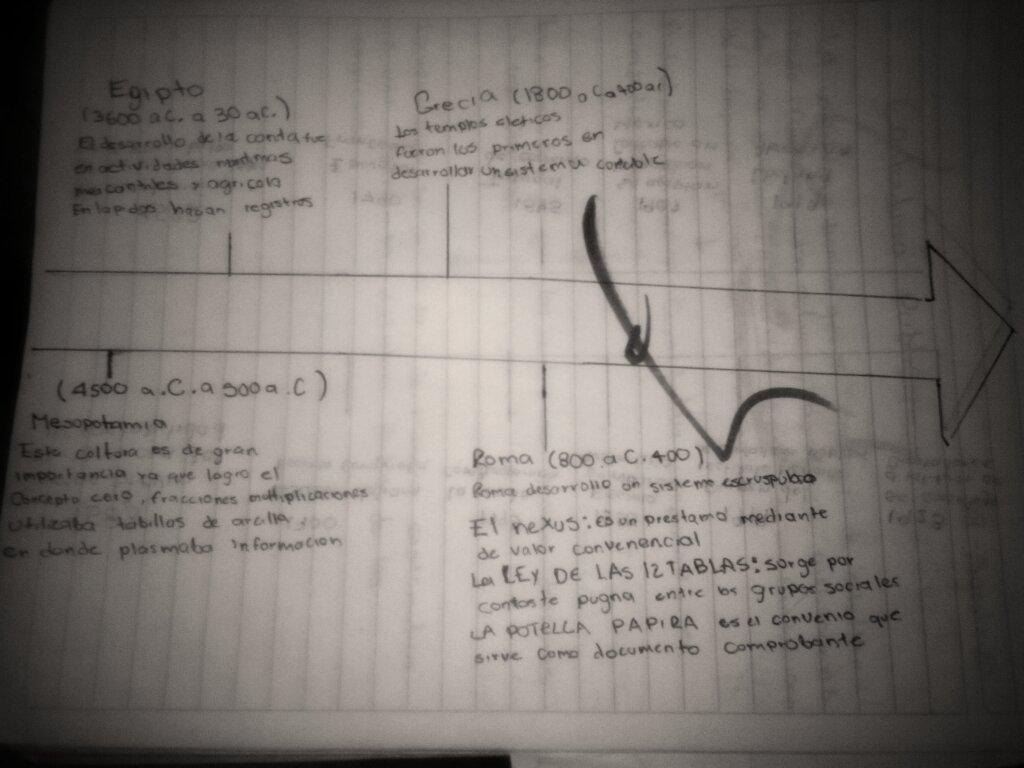 Egipto
(3600 a.C. a 30 a.C.)
El desarrollo de la conta fue
en actividades maritimas
mercantiles y agricola
En lapidas hacian registros
Grecia (1800 a.C a 400 a.c)
Los templos
fueron los primeros en
desarrollar un sistema contable
(4500 a.C. a 500 a.C)
Mesopotamia
Esta coltura es de gran
importancia ya que logro el
Concepto cero, fracciones multiplicaciones
Utilizaba tabillas de arcilla,
en donde plasmaba informacion
Roma (800 a.C. 400)
Roma desarrollo on sistema
El nexus: es un prestamo mediante
de valor convenencial
La LEY DE LAS 12 TABLAS: sorge por
constate pugna entre los grupos sociales
LA POTELLA PAPIRA es el convenio que
sirve como documento comprobante